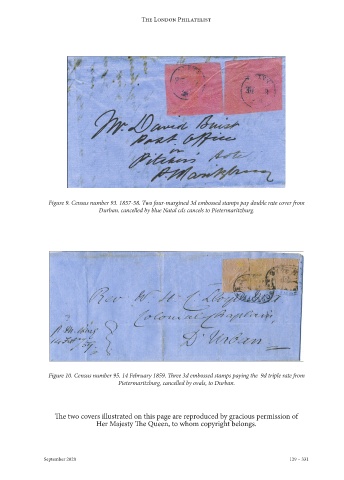 The London Philatelist
Mr. David Buist
Post Office
or
P. Maritzburg
Figure 9. Census number 93. 1857-58. Two four-margined 3d embossed stamps pay double rate cover from
Durban, cancelled by blue Natal cds cancels to Pietermaritzburg.
Rev. W. H. C. Lloyd
Colonial Chaplain,
D'Urban
Figure 10. Census number 95. 14 February 1859. Three 3d embossed stamps paying the 9d triple rate from
Pietermaritzburg, cancelled by ovals, to Durban.
The two covers illustrated on this page are reproduced by gracious permission of
Her Majesty The Queen, to whom copyright belongs.
September 2020
129 – 331